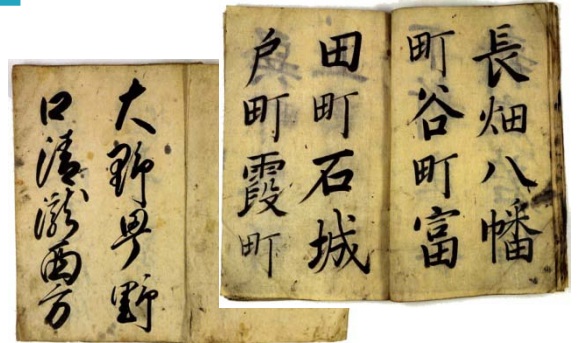 長畑八幡
町谷町富
田町石城
戸町霞町
大野野
口清瀧西方